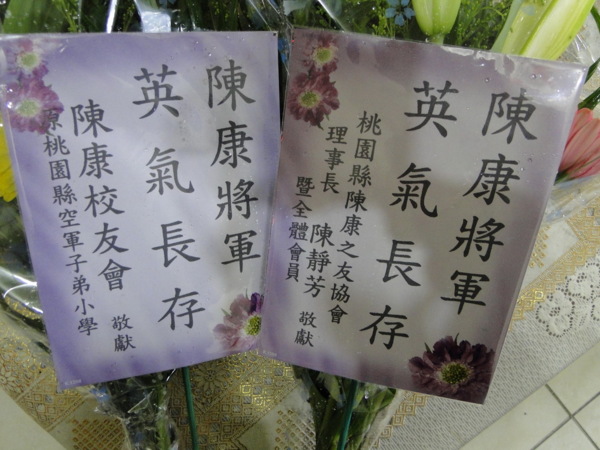 陳康將軍
英氣長存
陳康校友會
原桃園縣空軍子弟小學
敬獻
陳康將軍
英氣長存
桃園縣陳康之友協會
理事長 陳靜芳
暨全體會員
敬獻